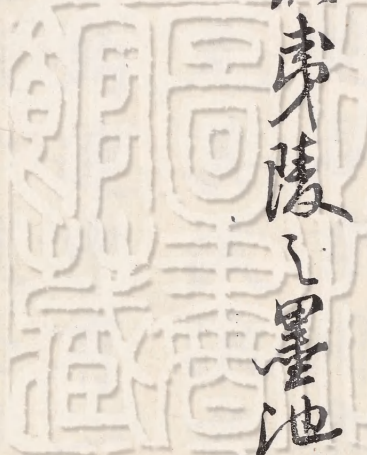 夷陵之墨池